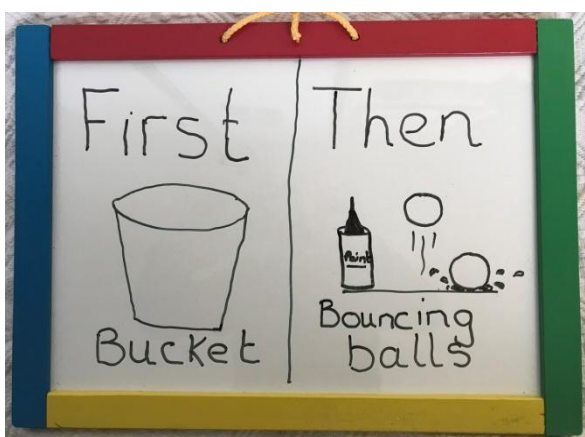 First
Bucket
Then
Paint
Bouncing
balls